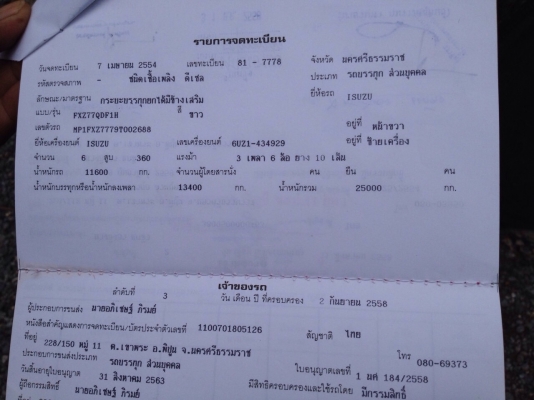 รายการจดทะเบียน
วันจดทะเบียน 7 เมษายน 2554 เลขทะเบียน 81 - 7778 จังหวัด นครศรีธรรมราช
รหัสตรวจสภาพ - ชนิดเชื้อเพลิง ดีเซล ประเภท รถบรรทุก ส่วนบุคคล
ลักษณะ/มาตรฐาน กระบะบรรทุกยกได้มีข้างเสริม ยี่ห้อรถ ISUZU
แบบ/รุ่น FXZ77QDF1H สี ขาว
เลขตัวรถ MP1FXZ77T9T002688 อยู่ที่ หน้าขวา
ยี่ห้อเครื่องยนต์ ISUZU เลขเครื่องยนต์ 6UZ1-434929 อยู่ที่ ซ้ายเครื่อง
จำนวน 6 สูบ 360 แรงม้า 3 เพลา 6 ล้อ ยาง 10 เส้น
น้ำหนักรถ 11600 กก. จำนวนผู้โดยสารนั่ง คน ยืน คน
น้ำหนักบรรทุกหรือน้ำหนักลงเพลา 13400 กก. น้ำหนักรวม 25000 กก.
เจ้าของรถ
ลำดับที่ 3 วัน เดือน ปี ที่ครอบครอง 2 กันยายน 2558
ผู้ประกอบการขนส่ง นายอภิเชษฐ์ ภิรมย์
หนังสือสำคัญแสดงการจดทะเบียน/บัตรประจำตัวเลขที่ 1100701805126 สัญชาติ ไทย
ที่อยู่ 228/150 หมู่ 11 ต.เขาพระ อ.พิปูน จ.นครศรีธรรมราช โทร 080-69373
ประกอบการขนส่งประเภท รถบรรทุก ส่วนบุคคล ใบอนุญาตเลขที่ 1 นศ 184/2558
วันสิ้นอายุใบอนุญาต 31 สิงหาคม 2563 มีสิทธิครอบครองและใช้รถโดย มีกรรมสิทธิ์
ผู้ถือกรรมสิทธิ์ นายอภิเชษฐ์ ภิรมย์